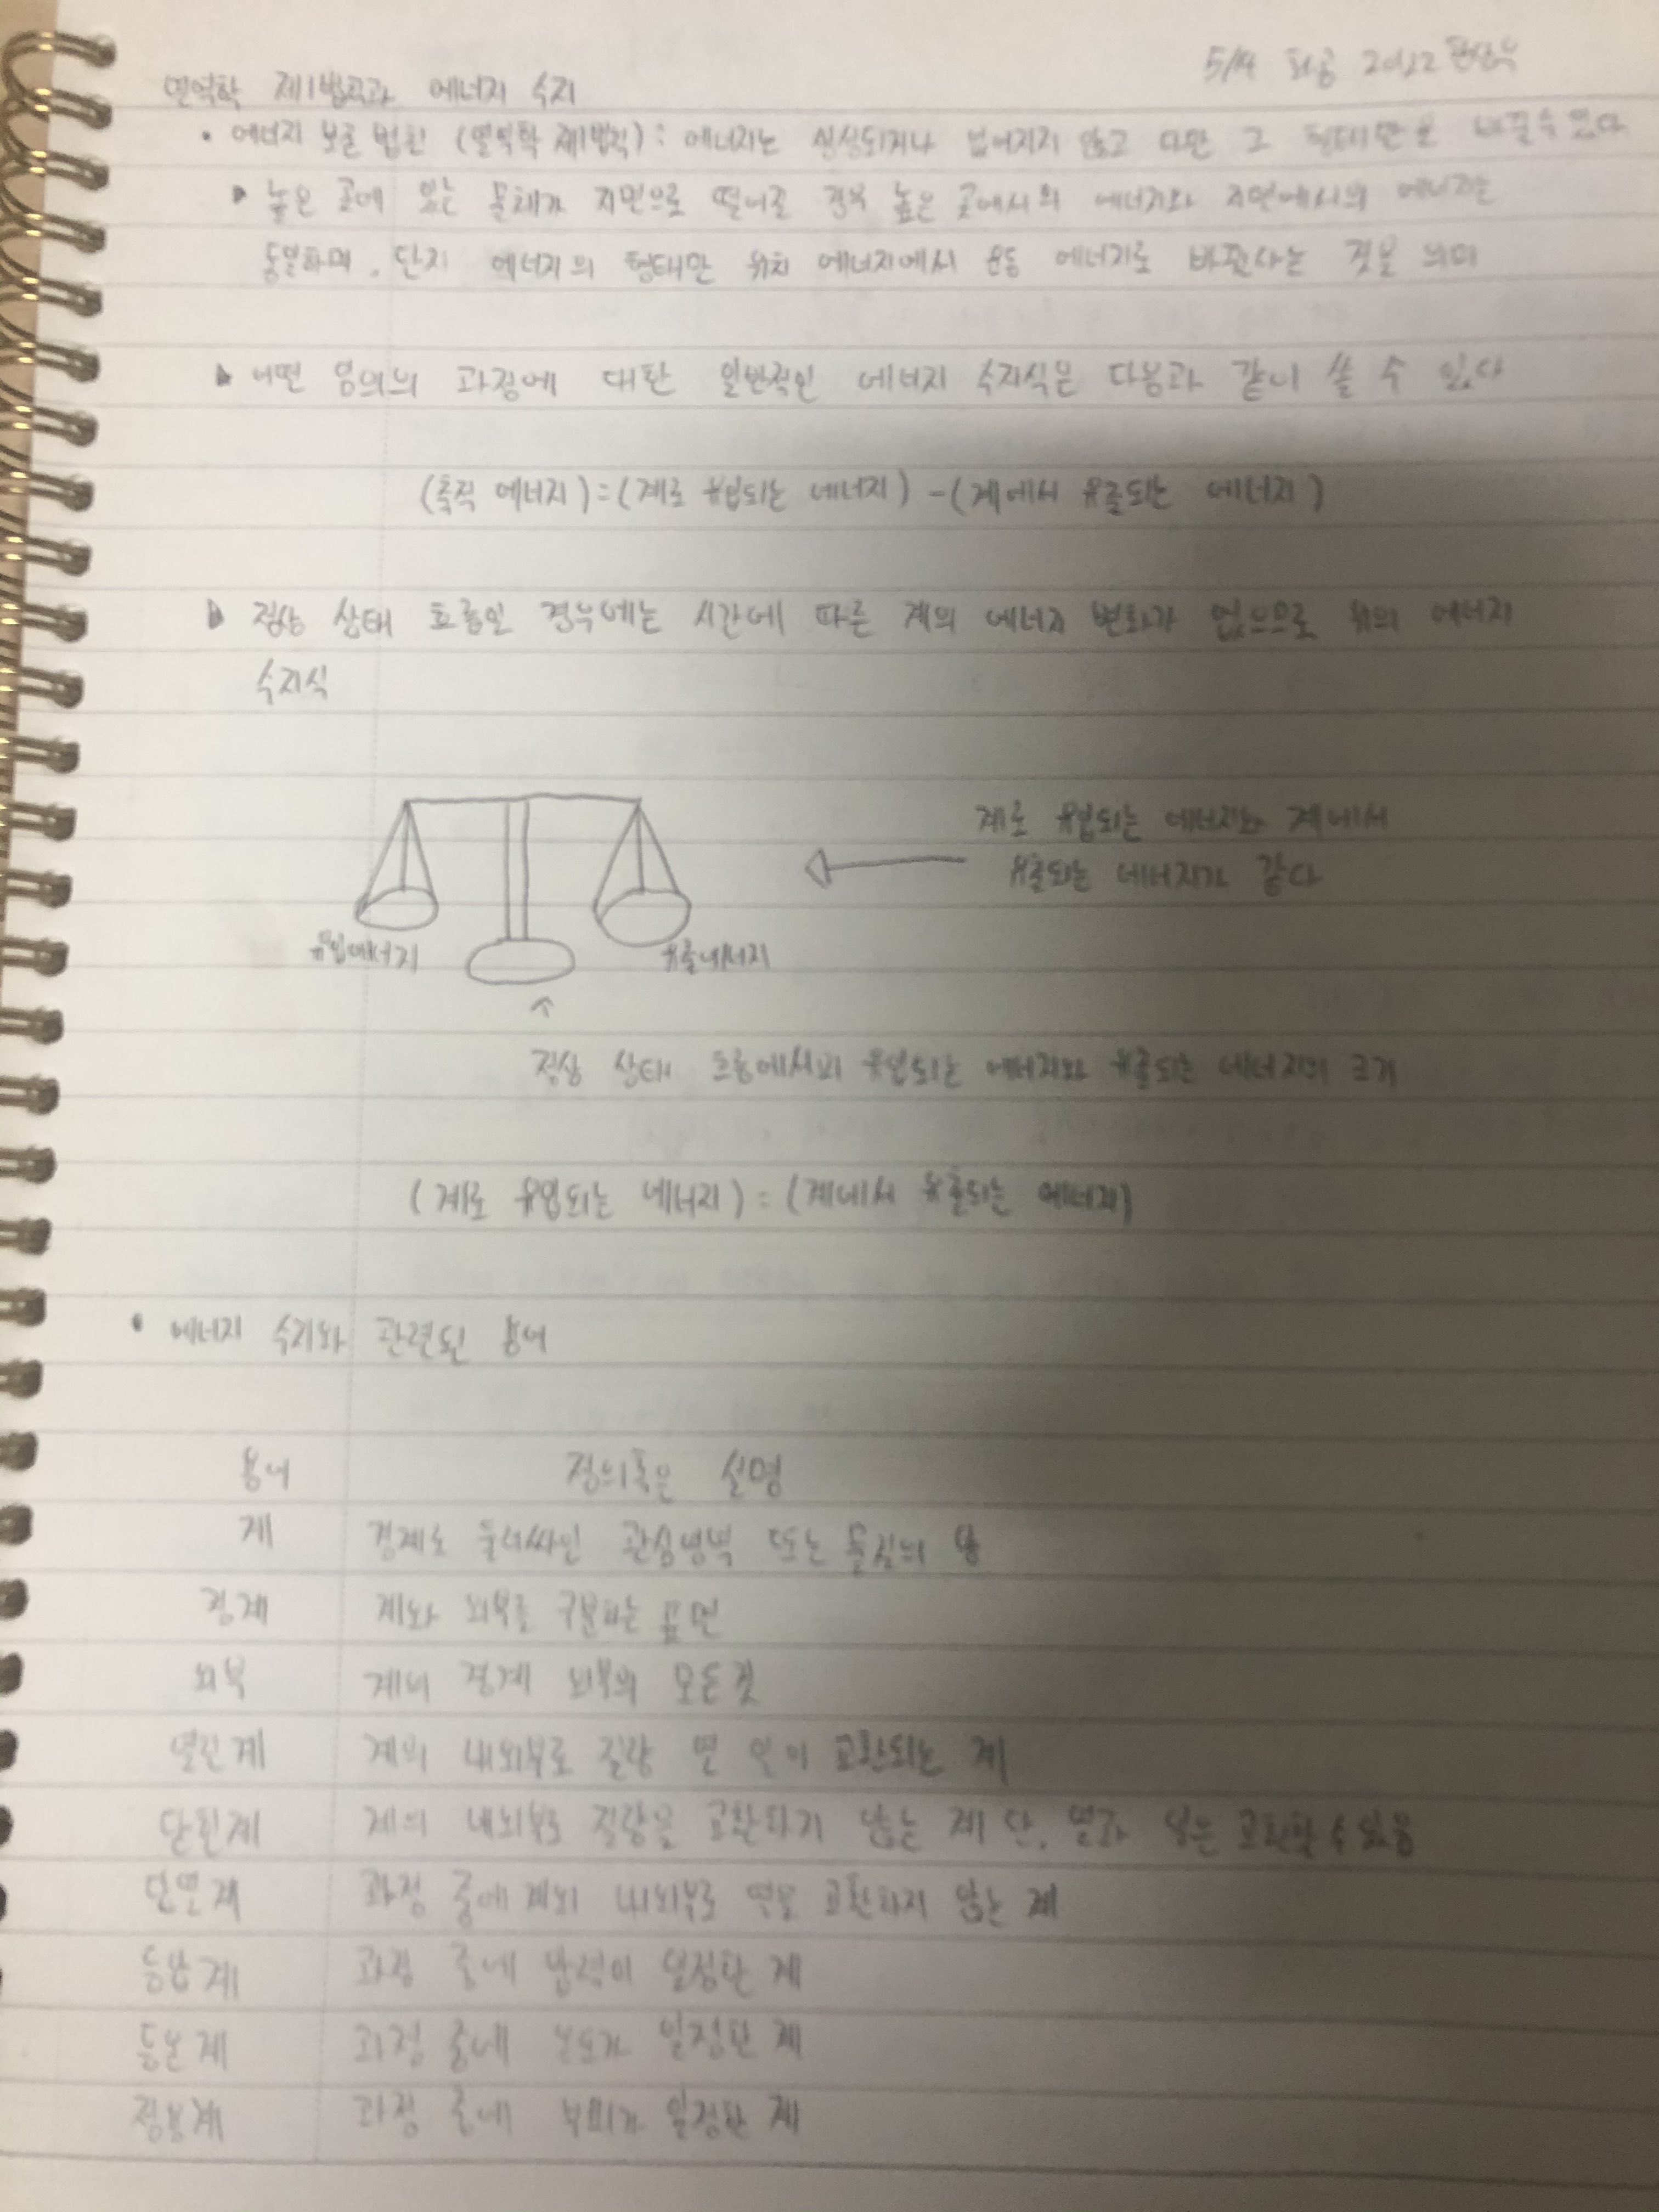 5/4 화공 20122
열역학 제1법칙과 에너지 수지
• 에너지 보존 법칙 (열역학 제1법칙) : 에너지는 생성되거나 없어지지 않고 다만 그 형태만을 바꿀 수 있다
▶ 높은 곳에 있는 물체가 지면으로 떨어질 경우 높은 곳에서의 에너지와 지면에서의 에너지는
동일하며, 단지 에너지의 형태만 위치 에너지에서 운동 에너지로 바뀐다는 것을 의미
▶ 어떤 임의의 과정에 대한 일반적인 에너지 수지식은 다음과 같이 쓸 수 있다
(축적 에너지) = (계로 유입되는 에너지) - (계에서 유출되는 에너지)
▶ 정상 상태 흐름인 경우에는 시간에 따른 계의 에너지 변화가 없으므로 위의 에너지
수지식
계로 유입되는 에너지와 계에서
유출되는 에너지가 같다
유입에너지 유출에너지
↑
정상 상태 흐름에서의 유입되는 에너지와 유출되는 에너지의 크기
(계로 유입되는 에너지) = (계에서 유출되는 에너지)
• 에너지 수지와 관련된 용어
용어 정의 혹은 설명
계 경계로 둘러싸인 관심영역 또는 물질의 양
경계 계와 외부를 구분하는 표면
외부 계의 경계 외부의 모든것
열린계 계의 내외부로 질량 열 일이 교환되는 계
닫힌계 계의 내외부로 질량을 교환하기 않는 계 단, 열과 일은 교환할 수 있음
단열계 과정 중에 계의 내외부로 열을 교환하지 않는 계
등압계 과정 중에 압력이 일정한 계
등온계 과정 중에 온도가 일정한 계
정용계 과정 중에 부피가 일정한 계